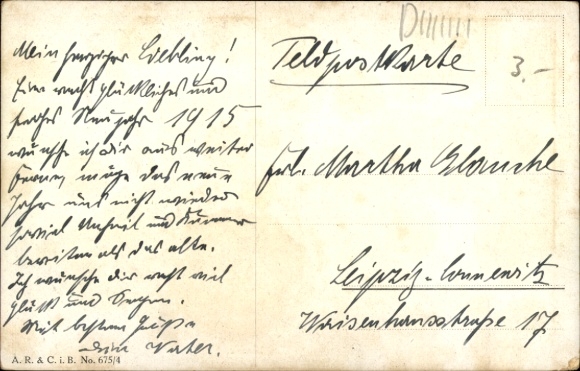 Mein herziger Liebling!
Ein recht glückliches und
frohes Neujahr 1915
wünsche ich dir aus weiter
Ferne, möge das neue
Jahr uns nicht wieder
soviel Unheil und Kummer
bereiten als das alte.
Ich wünsche dir recht viel
Glück und Segen.
Mit besten Grüßen
dein Vater.
A. R. & C. i. B. No. 675/4
Feldpostkarte
3.-
Frl. Martha Glauche
Leipzig-Connewitz
Waisenhausstraße 17